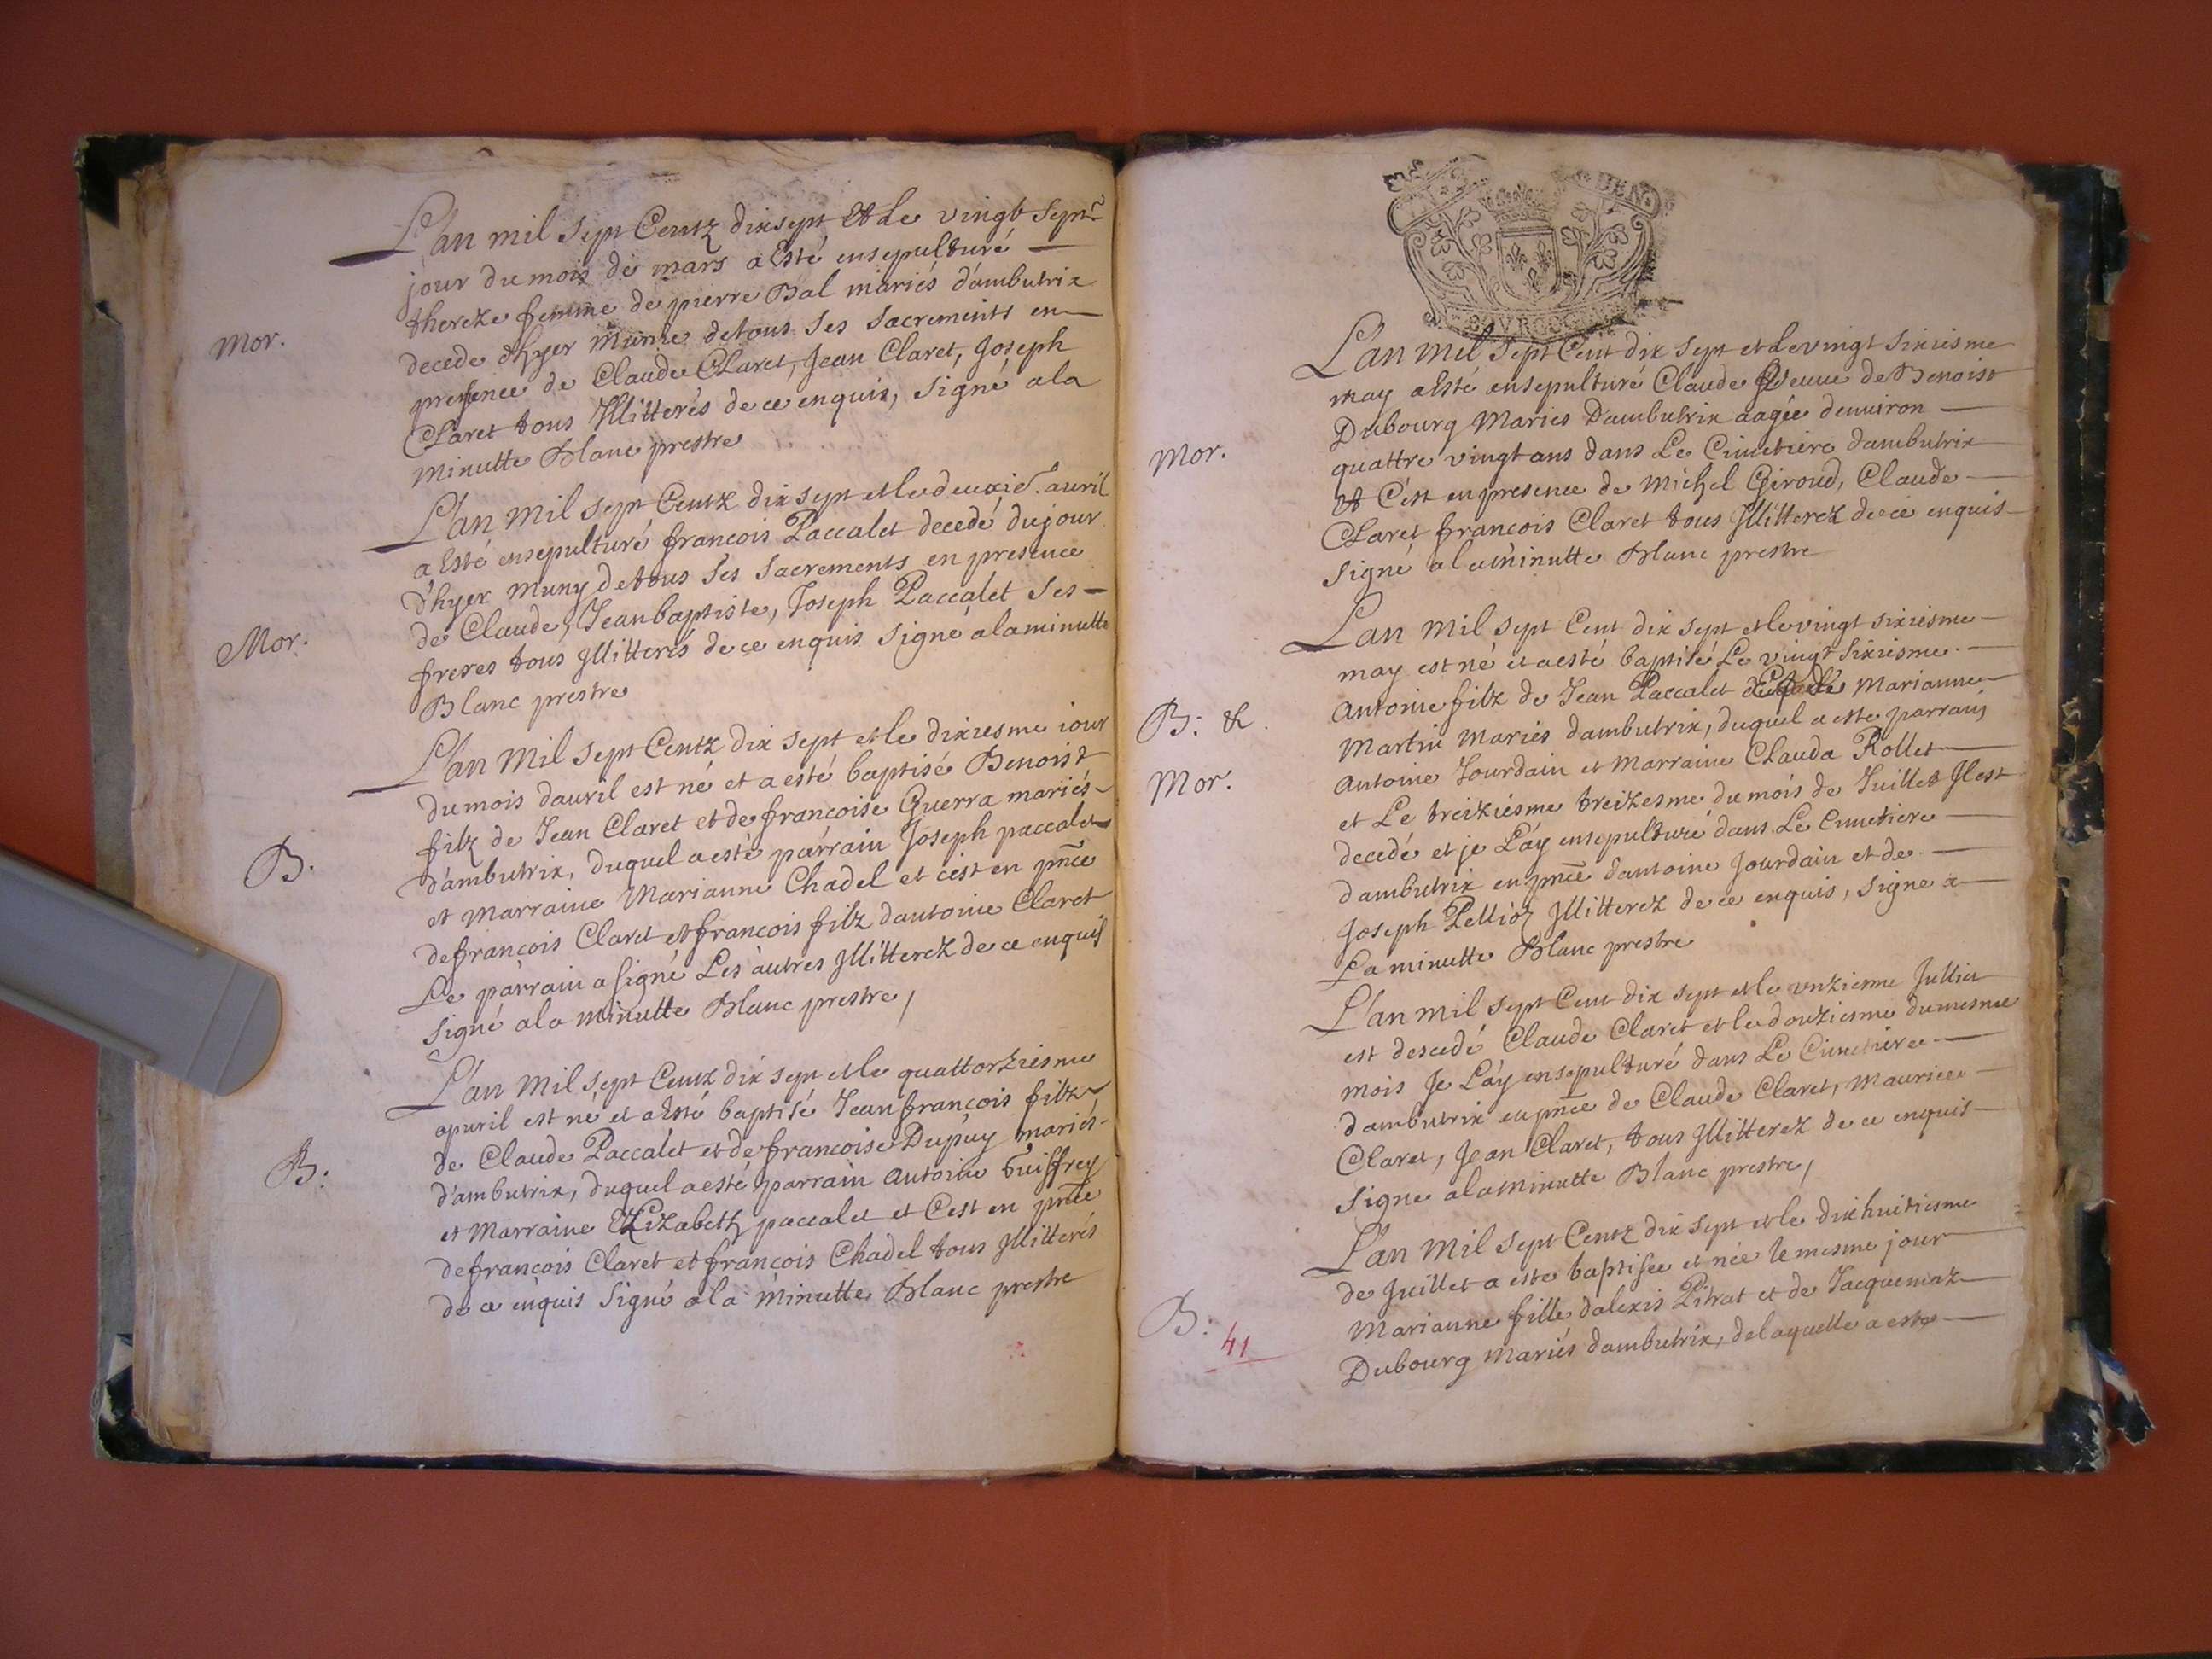 L'an mil sept Centz dix sept et Le vingt sept.e
jour du mois de mars a Esté ensepulturé
thereze femme de pierre Bal mariés d'ambutrix
Mor.
decede d'hyer munie de tous ses sacrements en
presence de Claude Claret, Jean Claret, Joseph
Claret tous Illitterés de ce enquis, signé a la
minutte Blanc prestre
L'an mil sept Centz dix sept et le deuxie. auril
a Esté ensepulturé francois Paccalet decedé du jour
d'hyer muny de tous ses sacrements en presence
de Claude, Jean baptiste, Joseph Paccalet ses
Mor.
freres tous Illitterés de ce enquis signé a la minutte
Blanc prestre
L'an mil sept Centz dix sept et le dixiesme iour
du mois dauril est né et a esté baptisé Benoist
filz de Jean Claret et de francoise Guerra mariés
B.
d'ambutrix, duquel a esté parrain Joseph paccalet
et Marraine Marianne Chadel et c'est en pnce
de francois Claret et francois filz dantoine Claret
Le parrain a signé Les autres Illitterez de ce enquis
signé a la minutte Blanc prestre,
L'an mil sept Centz dix sept et le quattorziesme
apuril est né et a Esté baptisé Jean francois filz
de Claude Paccalet et de francoise Dupuy mariés
B:
d'ambutrix, duquel a esté parrain antoine Cuiffrey
et Marraine Elizabeth paccalet et C'est en pnce
de francois Claret et francois Chadel tous Illitterés
de ce enquis signé a la minutte Blanc prestre
L'an mil sept Cent dix sept et le vingt sixiesme
may a Esté ensepulturé Claude veuue de Benoist
Dubourg Mariés D'ambutrix aagée denuiron
Mor.
quattre vingt ans dans Le Cimetiere d'ambutrix
et C'est en presence de michel Giroud, Claude
Claret francois Claret tous Illitterez de ce enquis
signé a la minutte Blanc prestre
L'an mil sept Cent dix sept et le vingt sixiesme
may est né et a esté baptisé Le vingt sixiesme
antoine filz de Jean Paccalet Marianne
B: &
Martin mariés dambutrix, duquel a este parrain
antoine Jourdain et marraine Clauda Rollet
Mor.
et Le treiziesme treizesme du mois de Juillet Il est
decedé et je L'ay ensepulturé dans Le Cimetiere
dambutrix en pnce d'antoine Jourdain et de
Joseph Pellioz Illitterez de ce enquis, signe a
La minutte Blanc prestre
L'an mil sept Cent dix sept et le vnzieme Jullict
est descedé Claude Claret et le douziesme du mesme
mois Je L'ay ensepulturé dans Le Cimetiere
dambutrix en pnce de Claude Claret, Maurice
Claret, Jean Claret, tous Illitterez de ce enquis
signe a la minutte Blanc prestre,
L'an mil sept Centz dix sept et le dixhuitiesme
de Juillet a este baptisee et née le mesme jour
Marianne fille dalexis Pitrat et de Jacquemaz
B:
41
Dubourg mariés dambutrix, de laquelle a este